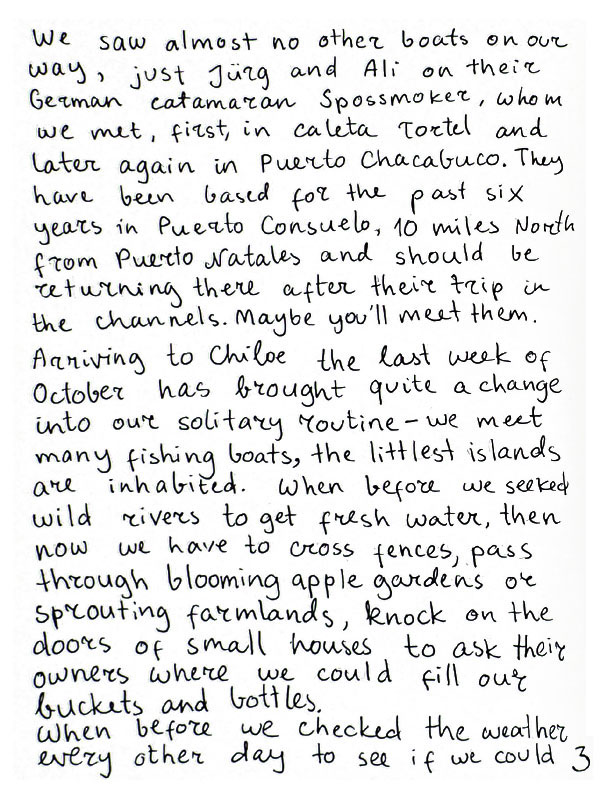 We saw almost no other boats on our
way, just Jürg and Ali on their
German catamaran Spossmoker, whom
we met, first, in caleta Tortel and
later again in Puerto Chacabuco. They
have been based for the past six
years in Puerto Consuelo, 10 miles North
from Puerto Natales and should be
returning there after their trip in
the channels. Maybe you'll meet them.
Arriving to Chiloe the last week of
October has brought quite a change
into our solitary routine - we meet
many fishing boats, the littlest islands
are inhabited. When before we seeked
wild rivers to get fresh water, then
now we have to cross fences, pass
through blooming apple gardens or
sprouting farmlands, knock on the
doors of small houses to ask their
owners where we could fill our
buckets and bottles.
When before we checked the weather
every other day to see if we could 3